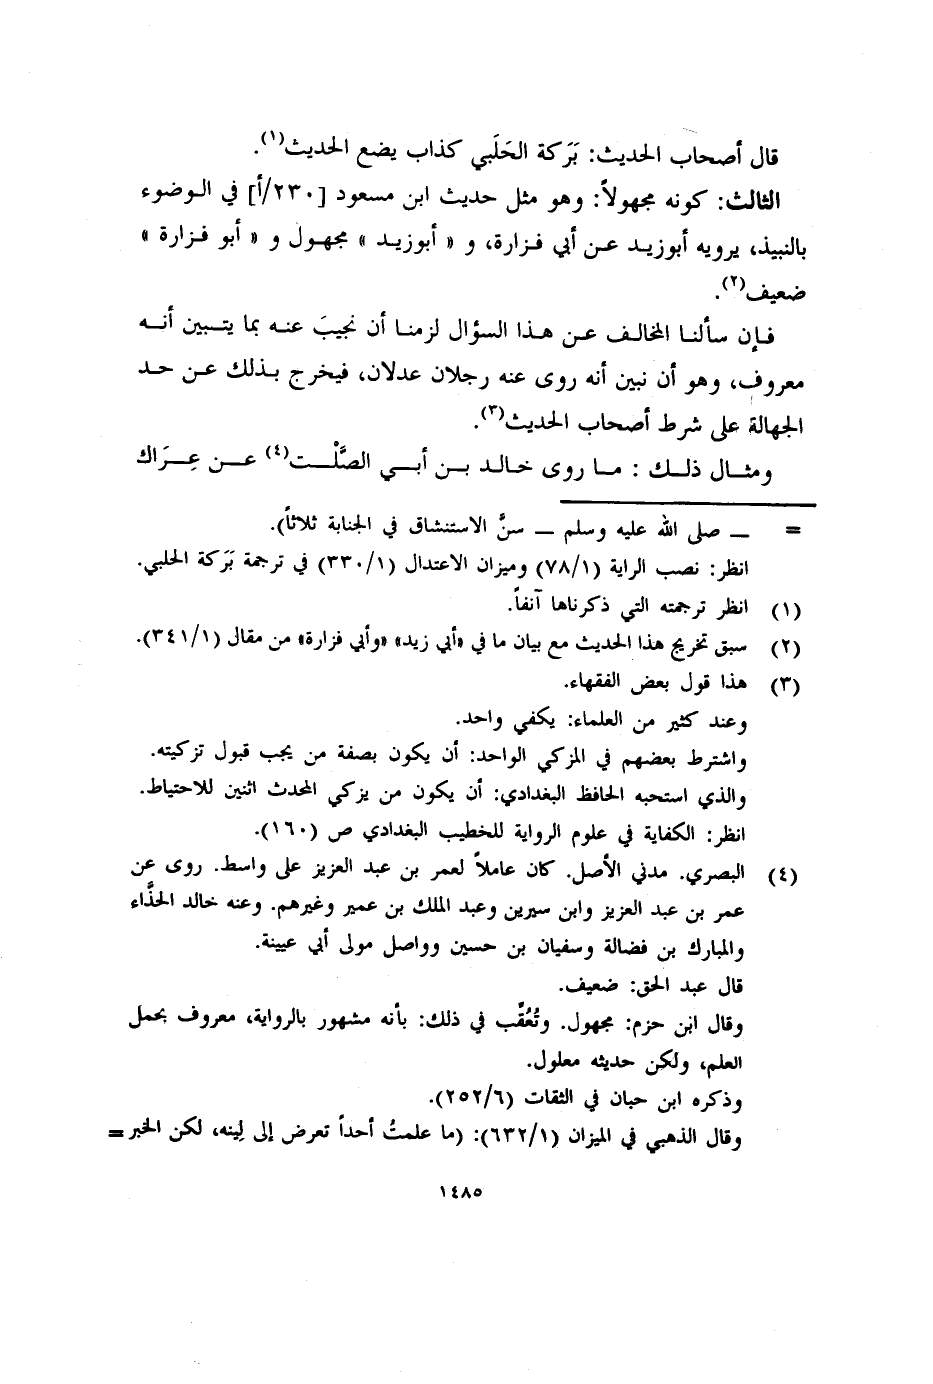 قال أصحاب الحديث: بَرَكة الحَلَبي كذاب يضع الحديث(١).
الثالث: كونه مجهولاً: وهو مثل حديث ابن مسعود [٢٣٠/أ] في الوضوء
بالنبيذ، يرويه أبوزيد عن أبي فزارة، و « أبوزيد » مجهول و « أبو فزارة »
ضعيف(٢).
فإن سألنا المخالف عن هذا السؤال لزمنا أن نجيبَ عنه بما يتبين أنه
معروف، وهو أن نبين أنه روى عنه رجلان عدلان، فيخرج بذلك عن حد
الجهالة على شرط أصحاب الحديث(٣).
ومثال ذلك : ما روى خالد بن أبي الصَّلْت(٤) عن عِرَاك
= ــ صلى الله عليه وسلم ــ سنَّ الاستنشاق في الجنابة ثلاثاً).
انظر: نصب الراية (٧٨/١) وميزان الاعتدال (٣٣٠/١) في ترجمة بَرَكة الحلبي.
(١) انظر ترجمته التي ذكرناها آنفاً.
(٢) سبق تخريج هذا الحديث مع بيان ما في «أبي زيد» «وأبي فزارة» من مقال (٣٤١/١).
(٣) هذا قول بعض الفقهاء.
وعند كثير من العلماء: يكفي واحد.
واشترط بعضهم في المزكي الواحد: أن يكون بصفة من يجب قبول تزكيته.
والذي استحبه الحافظ البغدادي: أن يكون من يزكي المحدث اثنين للاحتياط.
انظر: الكفاية في علوم الرواية للخطيب البغدادي ص (١٦٠).
(٤) البصري. مدني الأصل. كان عاملاً لعمر بن عبد العزيز على واسط. روى عن
عمر بن عبد العزيز وابن سيرين وعبد الملك بن عمير وغيرهم. وعنه خالد الحذَّاء
والمبارك بن فضالة وسفيان بن حسين وواصل مولى أبي عيينة.
قال عبد الحق: ضعيف.
وقال ابن حزم: مجهول. وتُعُقِّب في ذلك: بأنه مشهور بالرواية، معروف بحمل
العلم، ولكن حديثه معلول.
وذكره ابن حبان في الثقات (٢٥٢/٦).
وقال الذهبي في الميزان (٦٣٢/١): (ما علمتُ أحداً تعرض إلى لِينه، لكن الخبر =
١٤٨٥